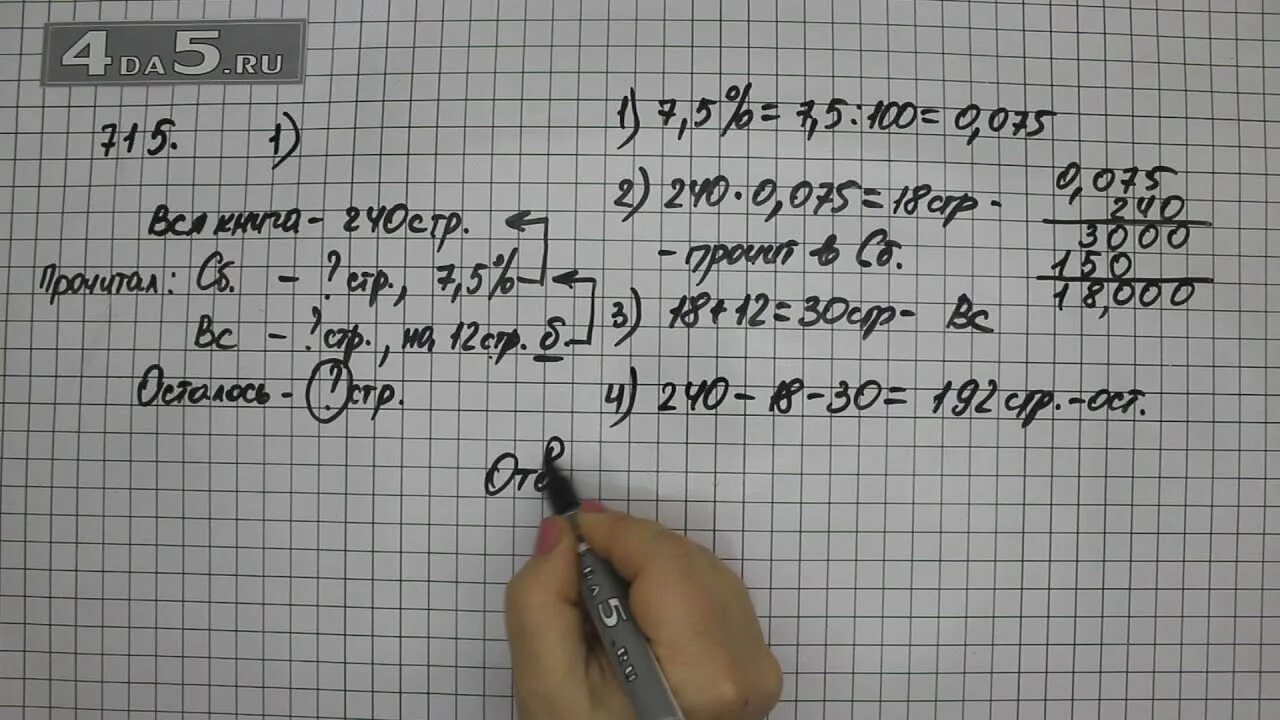 4DA5.RU
715. 1)
Вся книга - 240 стр.
Прочитал: Сб. - ? стр., 7,5%
Вс - ? стр., на 12 стр. б
Осталось - ? стр.
1) 7,5% = 7,5:100 = 0,075
2) 240·0,075 = 18 стр -
- прочит в Сб.
3) 18+12=30 стр - Вс
4) 240-18-30= 192 стр.-ост.
0,075
240
3000
150
18,000
Отв
4DA5.RU